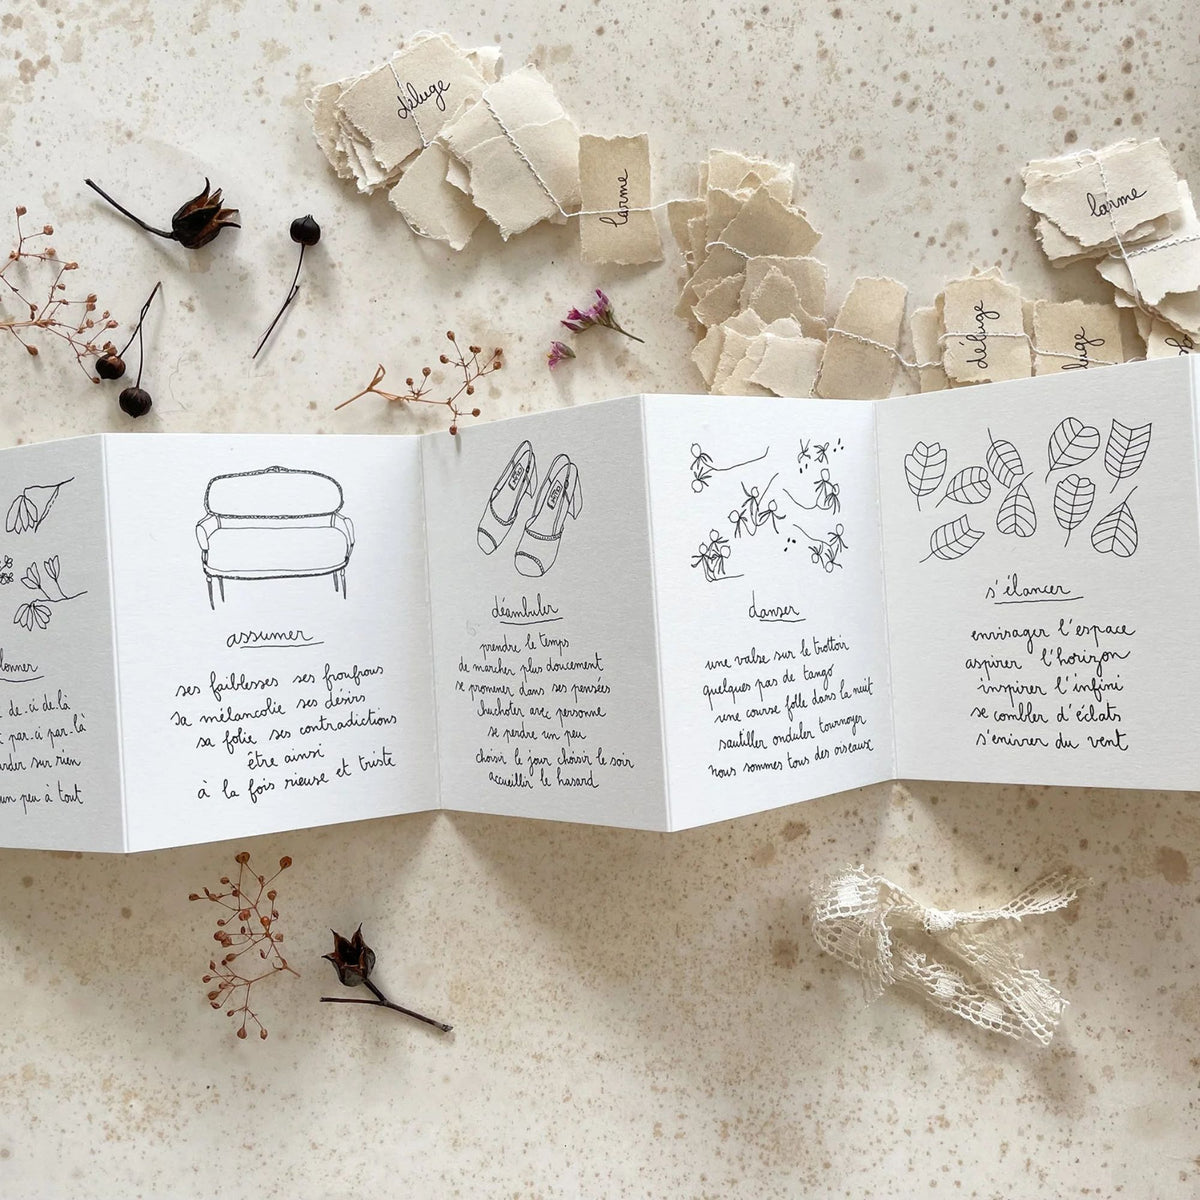 déluge
larme
larme
déluge
luge
lonner
de-ci de-là
par-ci par-là
arder sur rien
un peu à tout
assumer
ses faiblesses ses froufrous
sa mélancolie ses désirs
sa folie ses contradictions
être ainsi
à la fois rieuse et triste
déambuler
prendre le temps
de marcher plus doucement
se promener dans ses pensées
chuchoter avec personne
se perdre un peu
choisir le jour choisir le soir
accueillir le hasard
danser
une valse sur le trottoir
quelques pas de tango
une course folle dans la nuit
sautiller onduler tournoyer
nous sommes tous des oiseaux
s'élancer
envisager l'espace
aspirer l'horizon
inspirer l'infini
se combler d'éclats
s'enivrer du vent